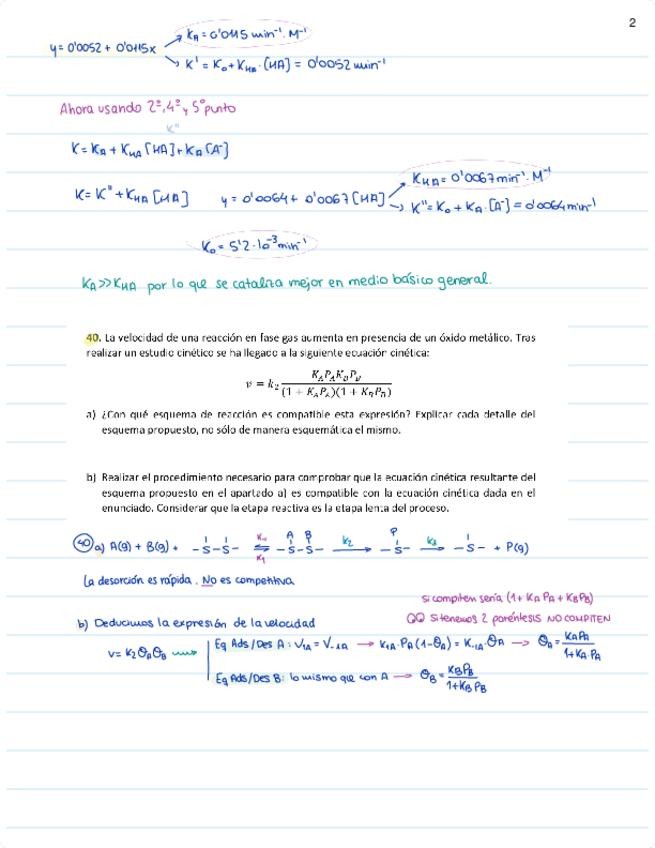 2
y = 0'0052 + 0'0115x
K_A = 0'0115 min⁻¹·M⁻¹
K' = K₀ + K_HA·[HA] = 0'0052 min⁻¹
Ahora usando 2º, 4º y 5º punto
K''
K = K_A + K_HA [HA] + K_A [A⁻]
K = K'' + K_HA [HA] y = 0'0064 + 0'0067 [HA]
K_HA = 0'0067 min⁻¹·M⁻¹
K'' = K₀ + K_A·[A⁻] = 0'0064 min⁻¹
K₀ = 5'2·10⁻³ min⁻¹
K_A >> K_HA por lo que se cataliza mejor en medio básico general.
40. La velocidad de una reacción en fase gas aumenta en presencia de un óxido metálico. Tras
realizar un estudio cinético se ha llegado a la siguiente ecuación cinética:
v = k₂ K_A P_A K_B P_B / (1 + K_A P_A)(1 + K_B P_B)
a) ¿Con qué esquema de reacción es compatible esta expresión? Explicar cada detalle del
esquema propuesto, no sólo de manera esquemática el mismo.
b) Realizar el procedimiento necesario para comprobar que la ecuación cinética resultante del
esquema propuesto en el apartado a) es compatible con la ecuación cinética dada en el
enunciado. Considerar que la etapa reactiva es la etapa lenta del proceso.
A B P
40 a) A(g) + B(g) + -S-S- ⇌ -S-S- K₂→ -S- K₃→ -S- + P(g)
La desorción es rápida. No es competitiva
si compiten sería (1 + K_A P_A + K_B P_B)
b) Deducimos la expresión de la velocidad
Si tenemos 2 paréntesis NO COMPITEN
v = K₂ θ_A θ_B
Eq Ads/Des A: V₁A = V₋₁A → K₁A·P_A (1-θ_A) = K₋₁A·θ_A → θ_A = K_A P_A / 1 + K_A·P_A
Eq Ads/Des B: lo mismo que con A → θ_B = K_B P_B / 1 + K_B P_B